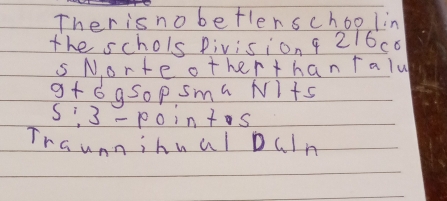 Ther is no betlen schoo l in
the schols Division 9 216 co
s Norte other than talu
gt 6 gsop sma N I ts
S ; 3 - point s
Traunn ihual Daln